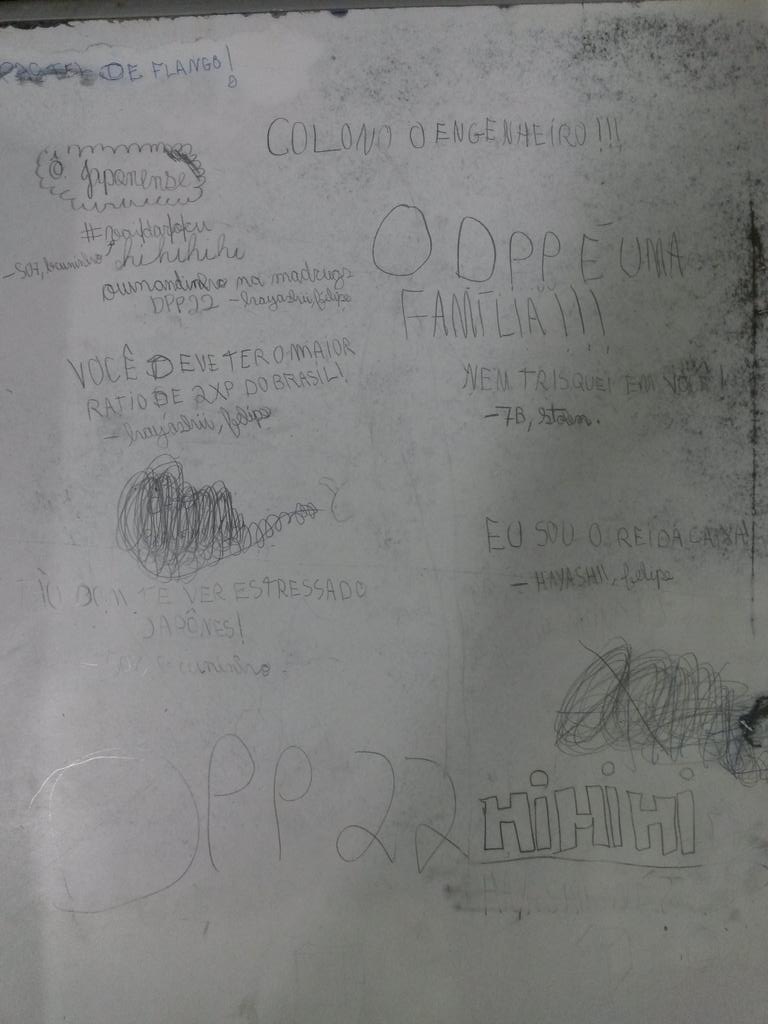 DE FLANGO!
COLONO O ENGENHEIRO!!!
Ô japonense
hihihihi
O DPP É UMA
FAMÍLIA!!!
na madruga
DPP22 - hayashii, felipe
VOCÊ DEVE TER O MAIOR
RATIO DE 2XP DO BRASIL!
- hayashii, felipe
NEM TRISQUEI EM VOCÊ!
- 7B,
EU SOU O REI DA CAIXA!
- HAYASHII, felipe
TE VER ESTRESSADO
JAPÔNES!
DPP 22
HiHiHi